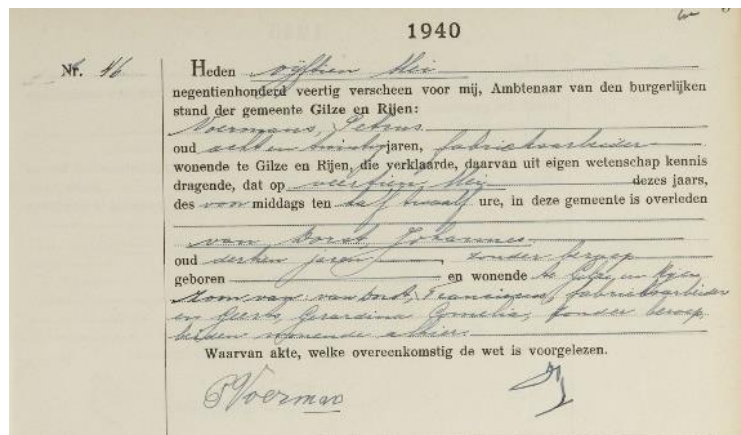 1940
Nr. 46
Heden vijftien Mei
negentienhonderd veertig verscheen voor mij, Ambtenaar van den burgerlijken
stand der gemeente Gilze en Rijen:
Voermans, Petrus
oud acht en twintig jaren, fabrieksarbeider
wonende te Gilze en Rijen, die verklaarde, daarvan uit eigen wetenschap kennis
dragende, dat op veertien Mei dezes jaars,
des voor middags ten half twaalf ure, in deze gemeente is overleden
van Dorst, Johannes
oud dertien jaren, zonder beroep
geboren en wonende te Gilze en Rijen
zoon van: van Dorst, Franciscus, fabrieksarbeider
en Geerts, Gerardina Cornelia, zonder beroep,
beiden wonende alhier
Waarvan akte, welke overeenkomstig de wet is voorgelezen.
P Voermans